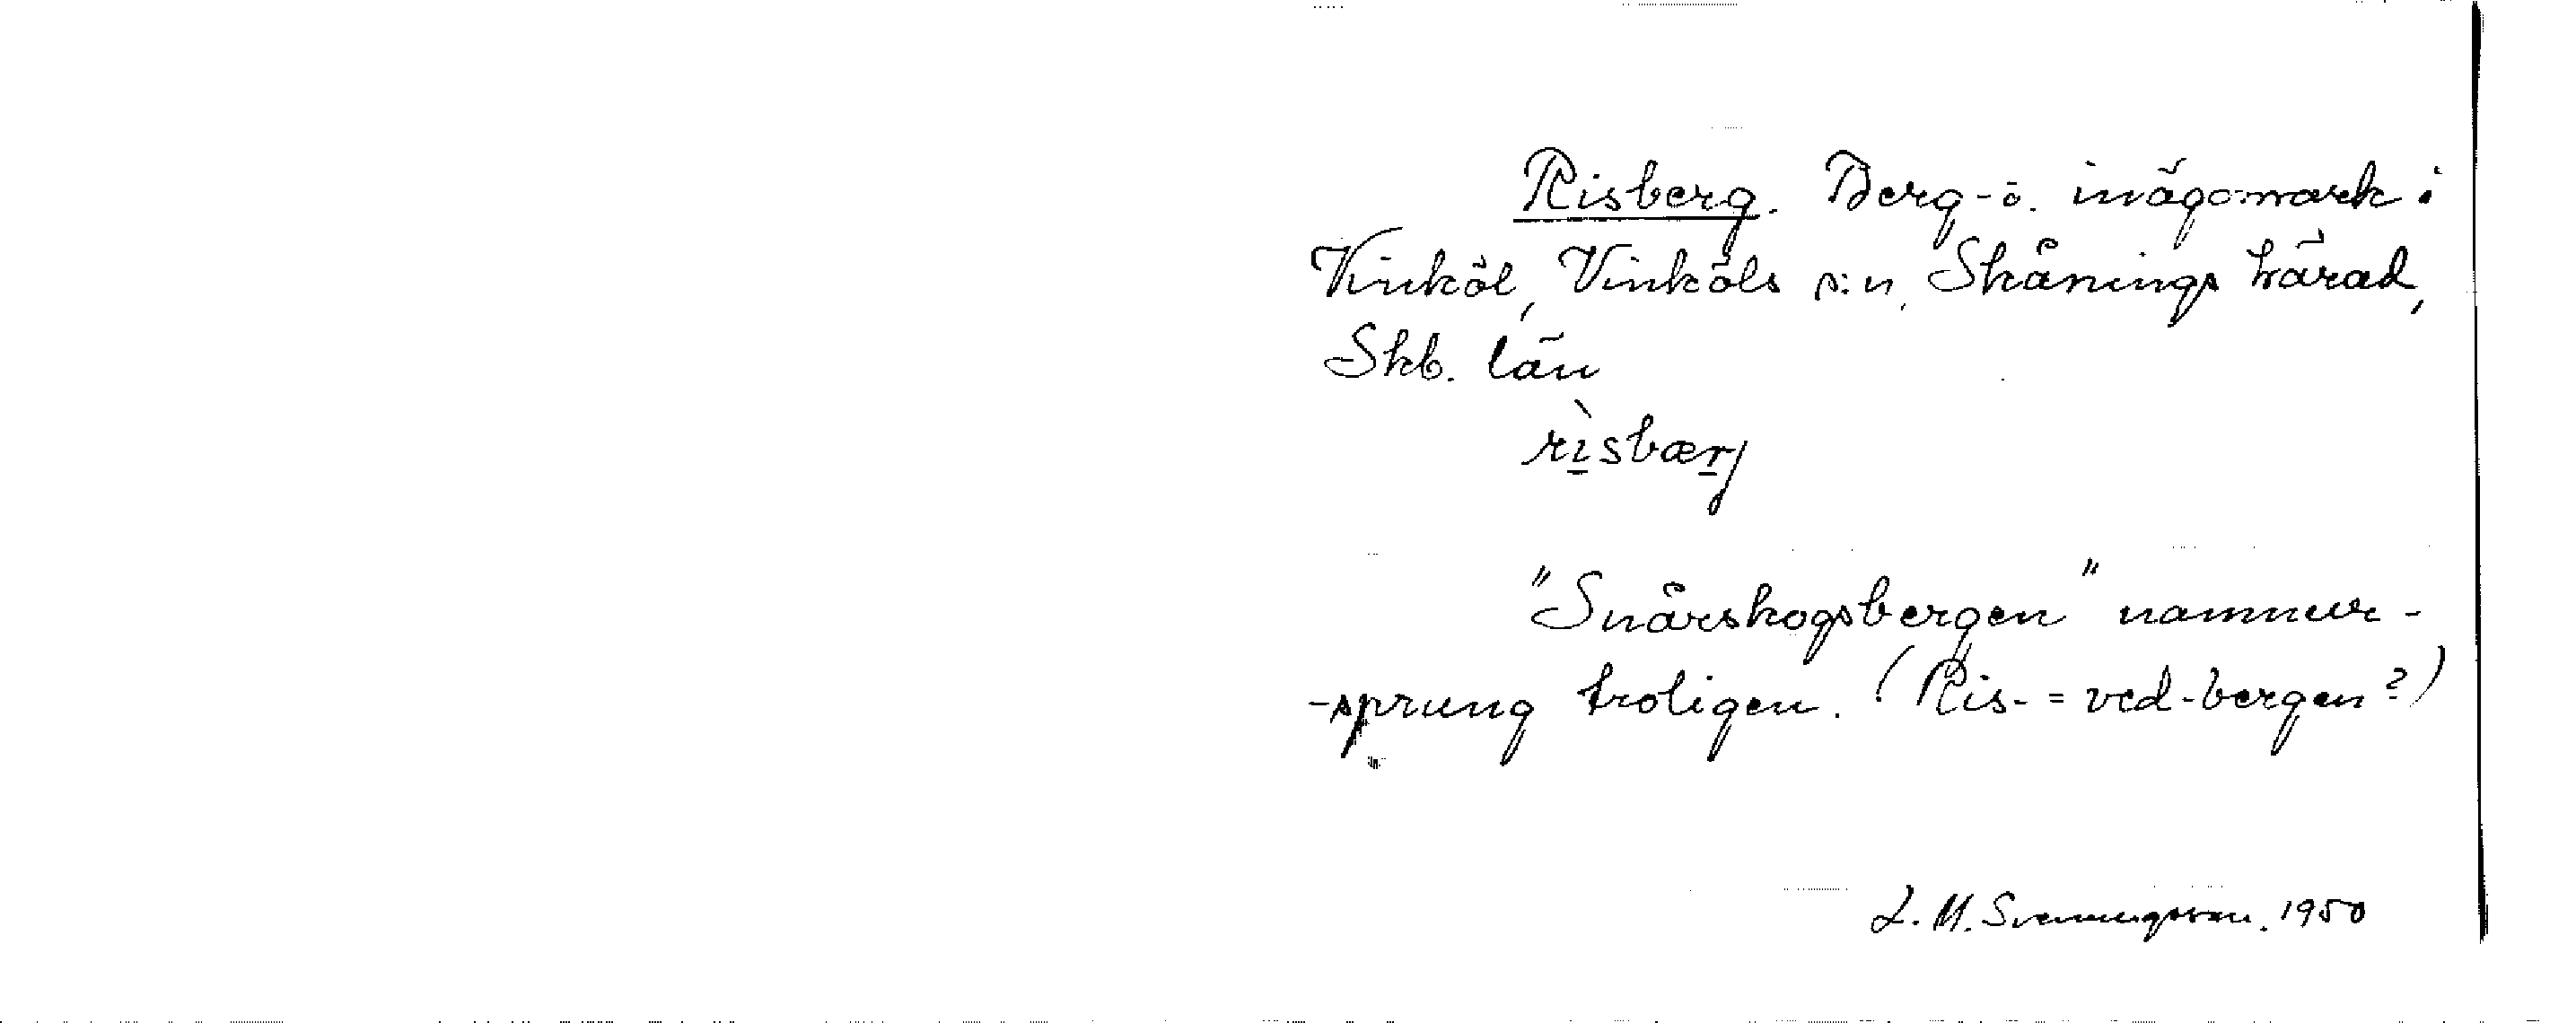 Risberg. Berg- o. inägomark i
Vinköl, Vinköls s:n, Skånings härad,
Skb. län
rìsbærj
"Snårskogsbergen" namnur-
-sprung troligen. (Ris- = ved-bergen?)
L. M. Svenungsson. 1950